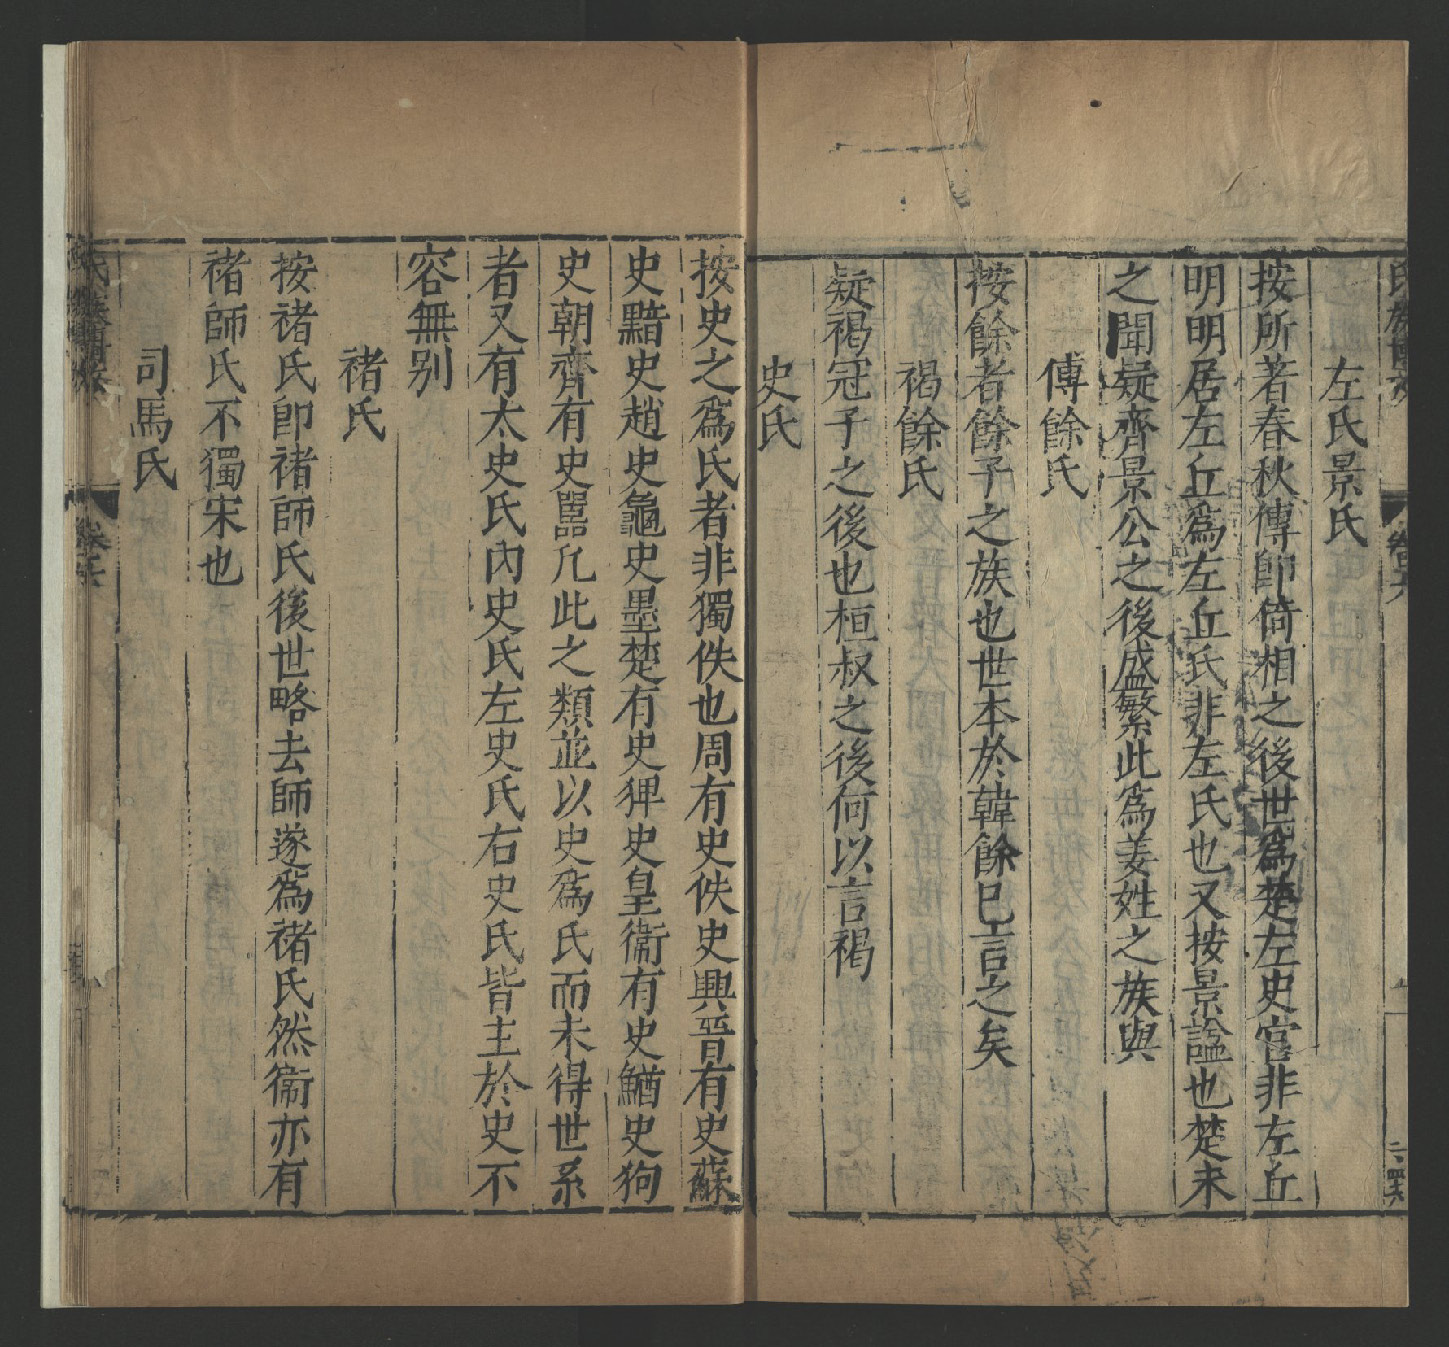 左氏景氏
按所著春秋傳卽倚相之後世爲楚左史官非左丘
明明居左丘爲左丘氏非左氏也又按景諡也楚未
之聞疑齊景公之後盛繁此爲姜姓之族與
傅餘氏
按餘者餘子之族也世本於韓餘已言之矣
褐餘氏
疑褐冠子之後也桓叔之後何以言褐
史氏
按史之爲氏者非獨佚也周有史佚史興晉有史蘇
史黯史趙史龜史墨楚有史狎史皇衞有史鰌史狗
史朝齊有史嚚凡此之類並以史爲氏而未得世系
者又有太史氏內史氏左史氏右史氏皆主於史不
容無别
褚氏
按褚氏卽褚師氏後世略去師遂爲褚氏然衞亦有
褚師氏不獨宋也
司馬氏